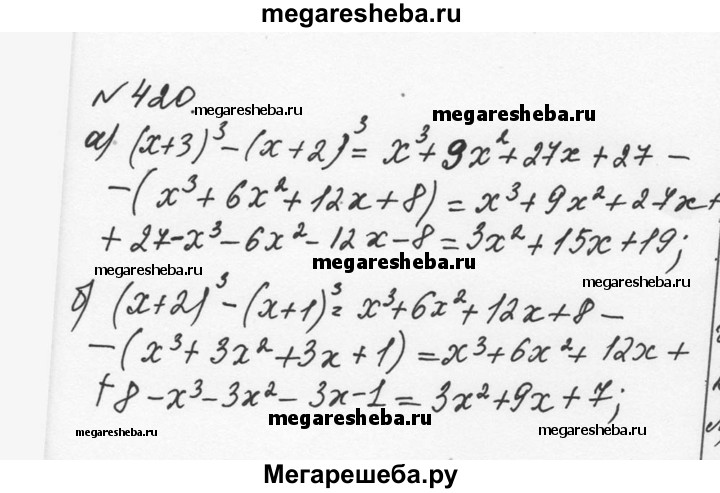 megaresheba.ru
№ 420.
megaresheba.ru megaresheba.ru
а) (x+3)³-(x+2)³= x³+9x²+27x+27-
-(x³+6x²+12x+8)=x³+9x²+27x+
+27-x³-6x²-12x-8=3x²+15x+19;
megaresheba.ru megaresheba.ru megaresheba.ru
б) (x+2)³-(x+1)³= x³+6x²+12x+8-
-(x³+3x²+3x+1)=x³+6x²+12x+
+8-x³-3x²-3x-1=3x²+9x+7;
megaresheba.ru megaresheba.ru megaresheba.ru
Мегарешеба.ру